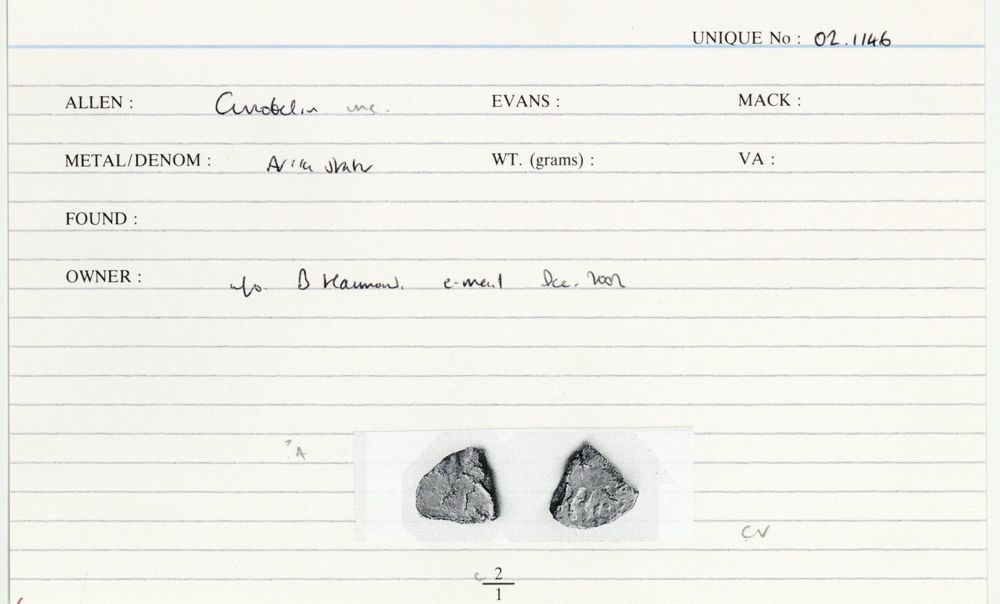 UNIQUE No : 02.1146
ALLEN : Cunobelin unc. EVANS : MACK :
METAL/DENOM : WT. (grams) : VA :
FOUND :
OWNER : info. B Hammond. e-mail Dec. 2002
? A
CV
c 2
1